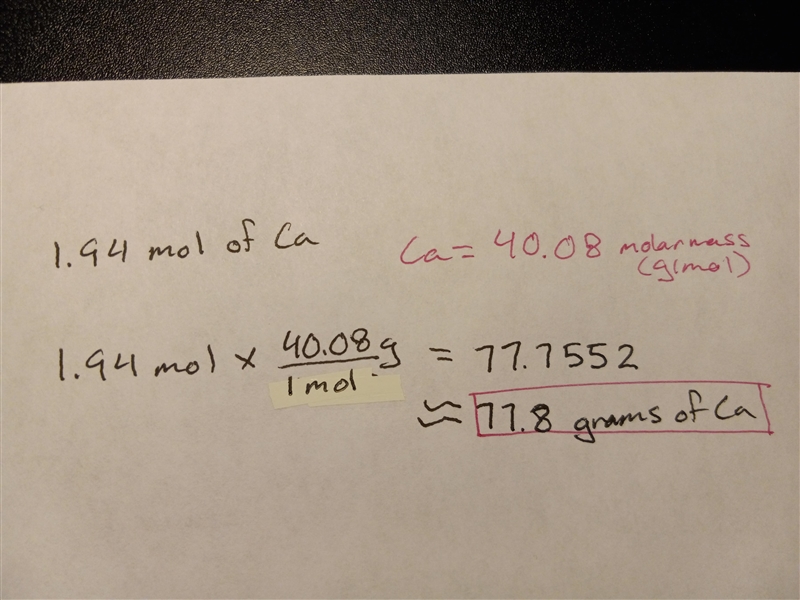 1.94 mol of Ca
Ca = 40.08 molar mass
(g/mol)
1.94 mol × 40.08 g = 77.7552
1 mol
≈ 77.8 grams of Ca